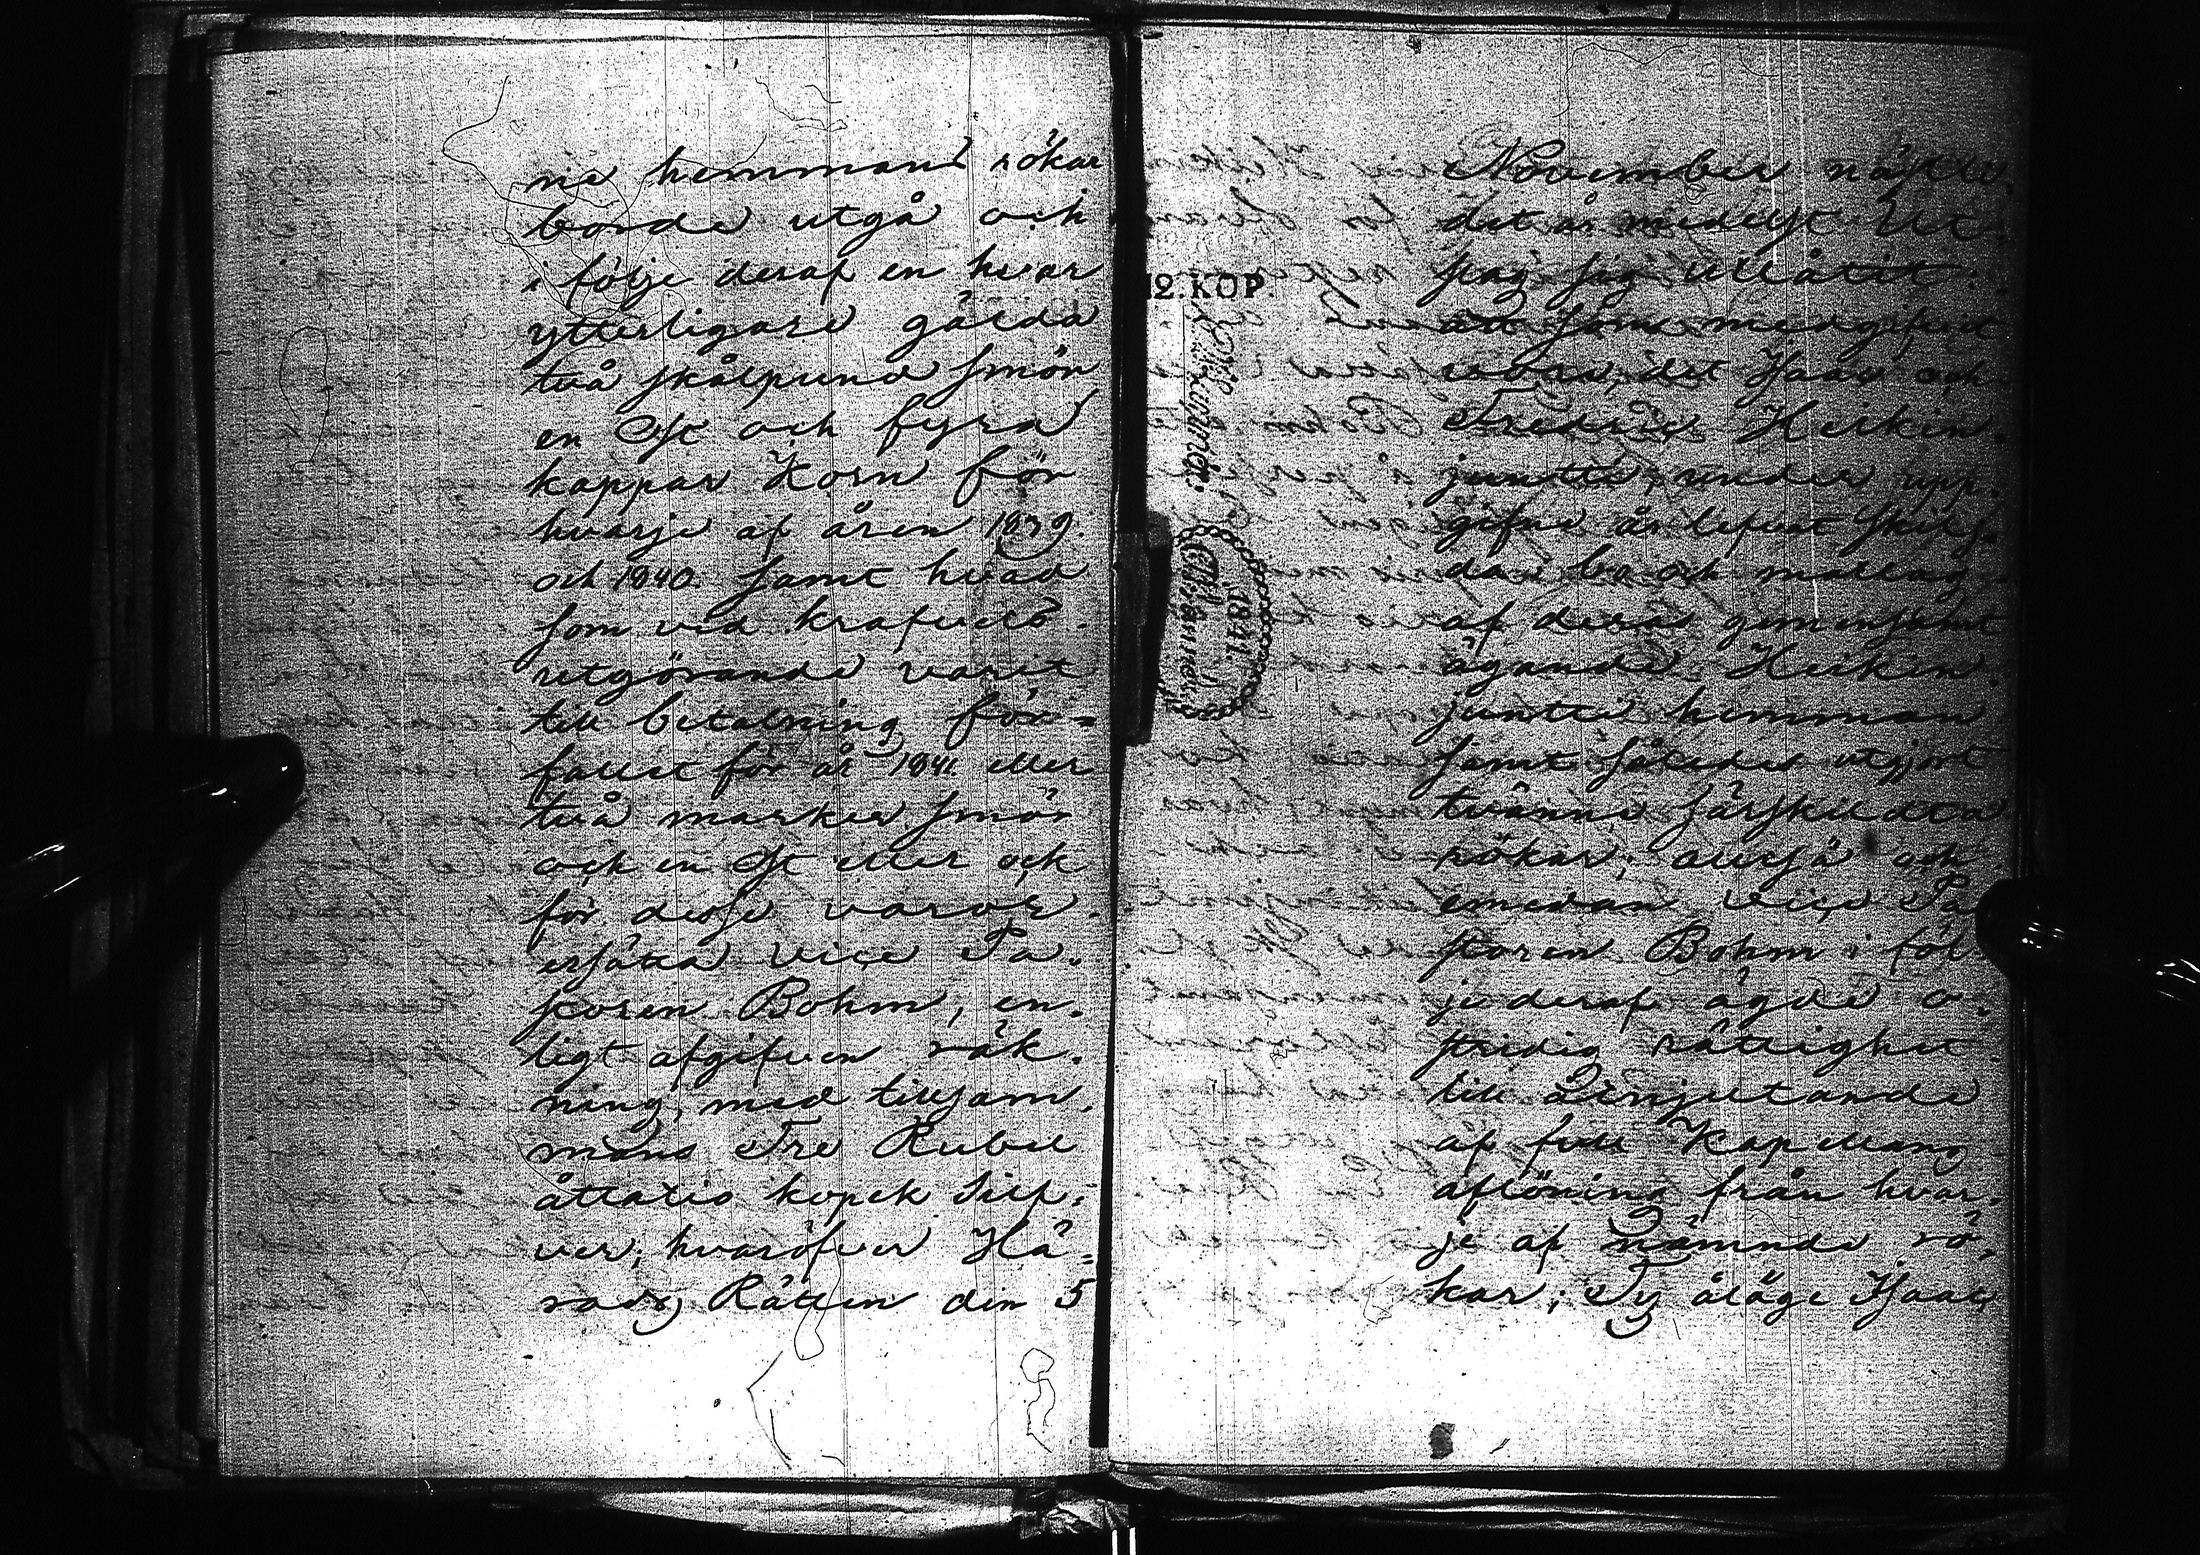 na hemmans rökar
borde utgå och
i följe deraf en hvar
ytterligare gälda
två skålpund smör
en Ost och fyra
kappar Korn för
hvarje af åren 1839.
och 1840. samt hvad
som vid krafvets
utgörande varit
till betalning för=
fallit för år 1841. eller
två marker smör
och en Ost eller ock
för desse varor
ersätta vice Pa.
storen Bohm, en.
ligt afgifven räk.
ning, med tillsam.
mans Tre Rubel
åttatio kopek Silf=
ver; hvaröfver Hä=
rads Rätten den 5
12. KOP.
1841.
November nästle.
det år medelst Ut.
slag sig utlåtit:
att som medgifvit
vore, det Isaac och
Fredric Heikin.
juntti, under upp.
gifne år lefvat skilj.
da i bo och matlag
af deras gemensamt
ägande Heikin.
juntti hemman
samt således utgjort
tvänne särskildta
rökar; alltså och
emedan vice Pa
storen Bohm i föl
je deraf ägde o.
stridig rättighet
till åtnjutande
af full Kapellans
aflöning från hvar.
je af nämnde rö.
kar; Ty ålåge Isaac